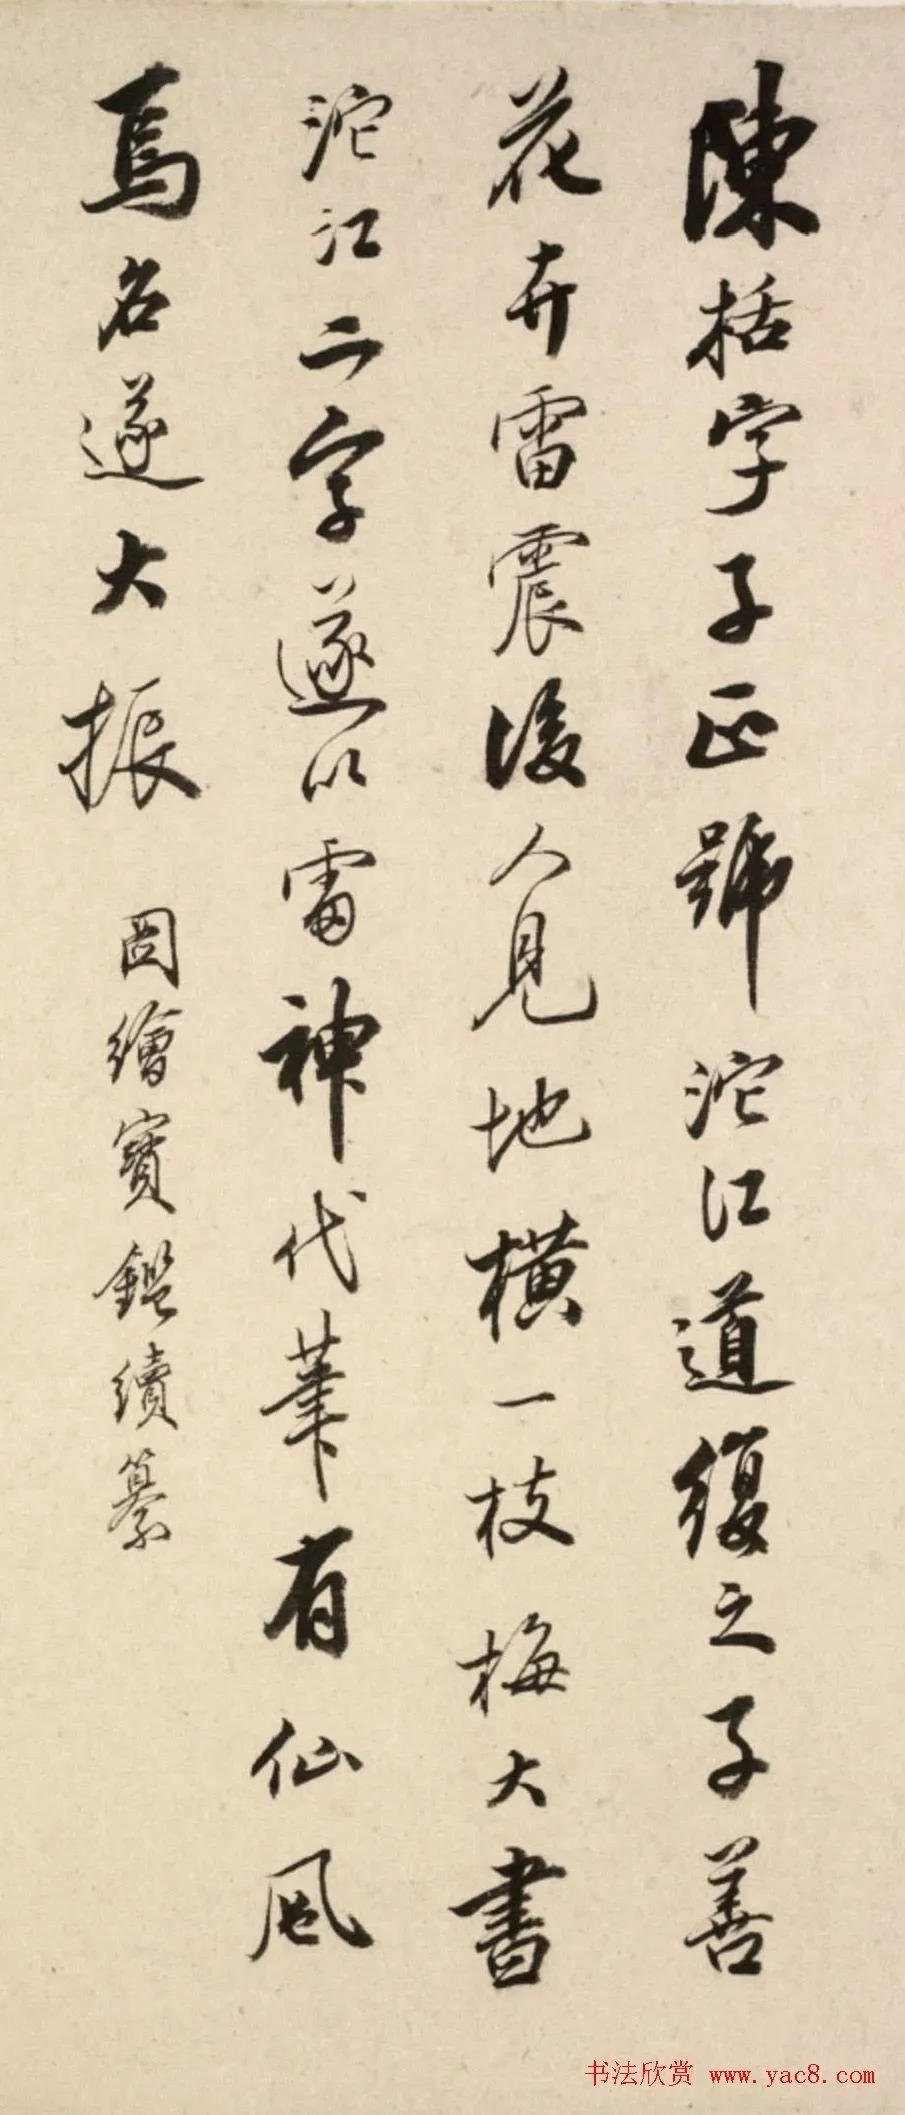 陳括字子正號沱江道復之子善
花卉雷震後人見地橫一枝梅大書
沱江二字遂以雷神代筆有仙風
焉名遂大振 圖繪寶鑑續纂
书法欣赏 www.yac8.com